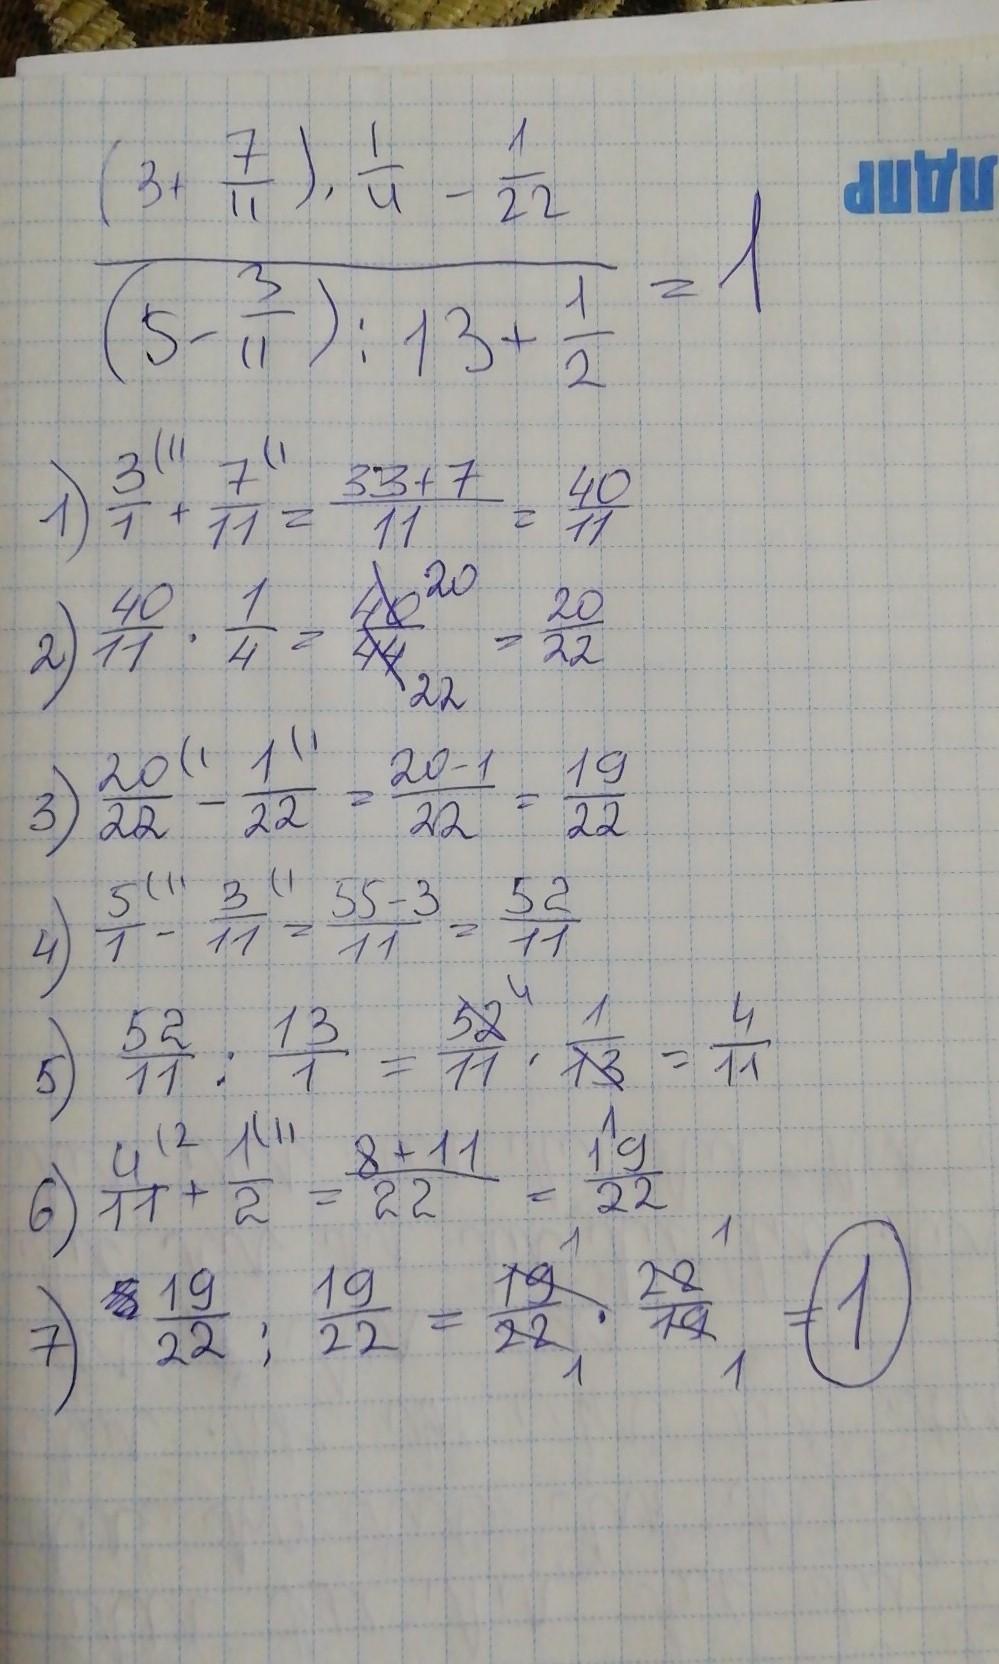 ЛДПР
(3+ 7/11) · 1/4 - 1/22
(5- 3/11) : 13+ 1/2 = 1
1) 3(11/1 + 7(1/11 = 33+7/11 = 40/11
2) 40/11 · 1/4 = 40 20/44 22 = 20/22
3) 20(1/22 - 1(1/22 = 20-1/22 = 19/22
4) 5(11/1 - 3(1/11 = 55-3/11 = 52/11
5) 52/11 : 13/1 = 52 4/11 · 1/13 = 4/11
6) 4(2/11 + 1(11/2 = 8+11/22 = 19/22
7) 19/22 : 19/22 = 19 1/22 1 · 22 1/19 1 = 1